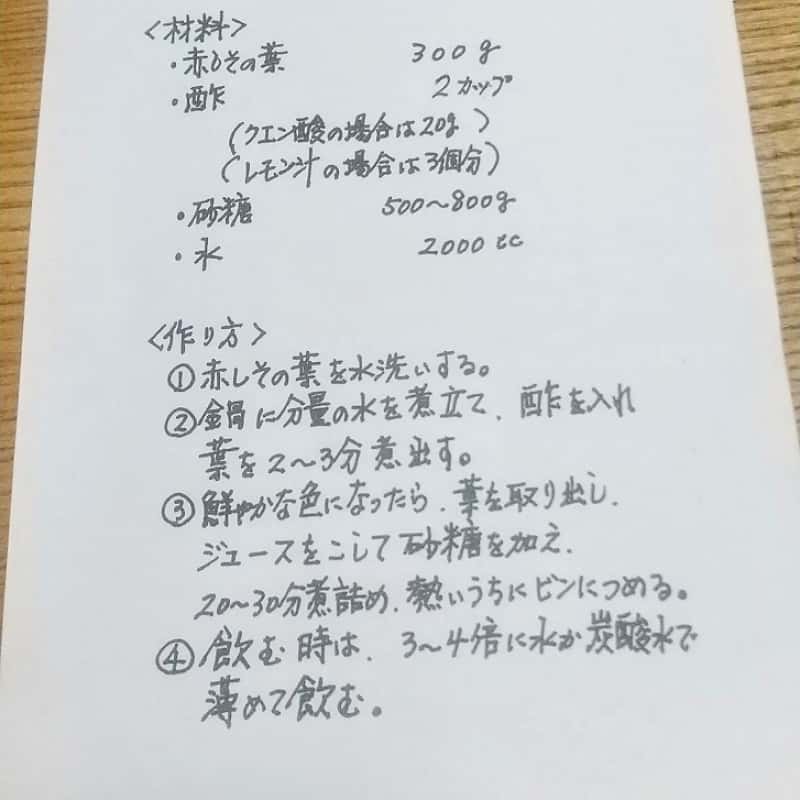 <材料>
・赤しその葉 300g
・酢 2カップ
(クエン酸の場合は20g)
(レモン汁の場合は3個分)
・砂糖 500〜800g
・水 2000cc
<作り方>
①赤しその葉を水洗いする。
②鍋に分量の水を煮立て、酢を入れ
葉を2〜3分煮出す。
③鮮やかな色になったら、葉を取り出し、
ジュースをこして砂糖を加え、
20〜30分煮詰め、熱いうちにビンにつめる。
④飲む時は、3〜4倍に水か炭酸水で
薄めて飲む。